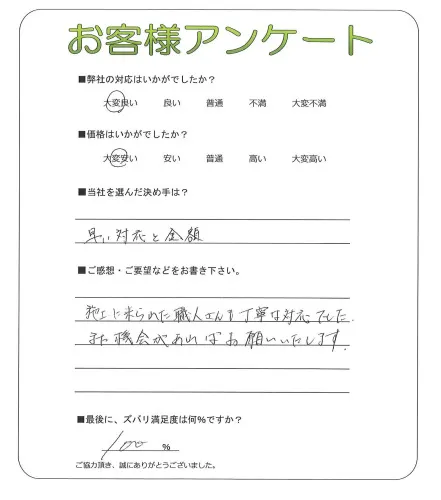 お客様アンケート
■弊社の対応はいかがでしたか?
大変良い 良い 普通 不満 大変不満
■価格はいかがでしたか?
大変安い 安い 普通 高い 大変高い
■当社を選んだ決め手は?
早い対応と金額
■ご感想・ご要望などをお書き下さい。
施工に来られた職人さんも丁寧な対応でした.
また機会があればお願いいたします.
■最後に、ズバリ満足度は何%ですか?
100 %
ご協力頂き、誠にありがとうございました。